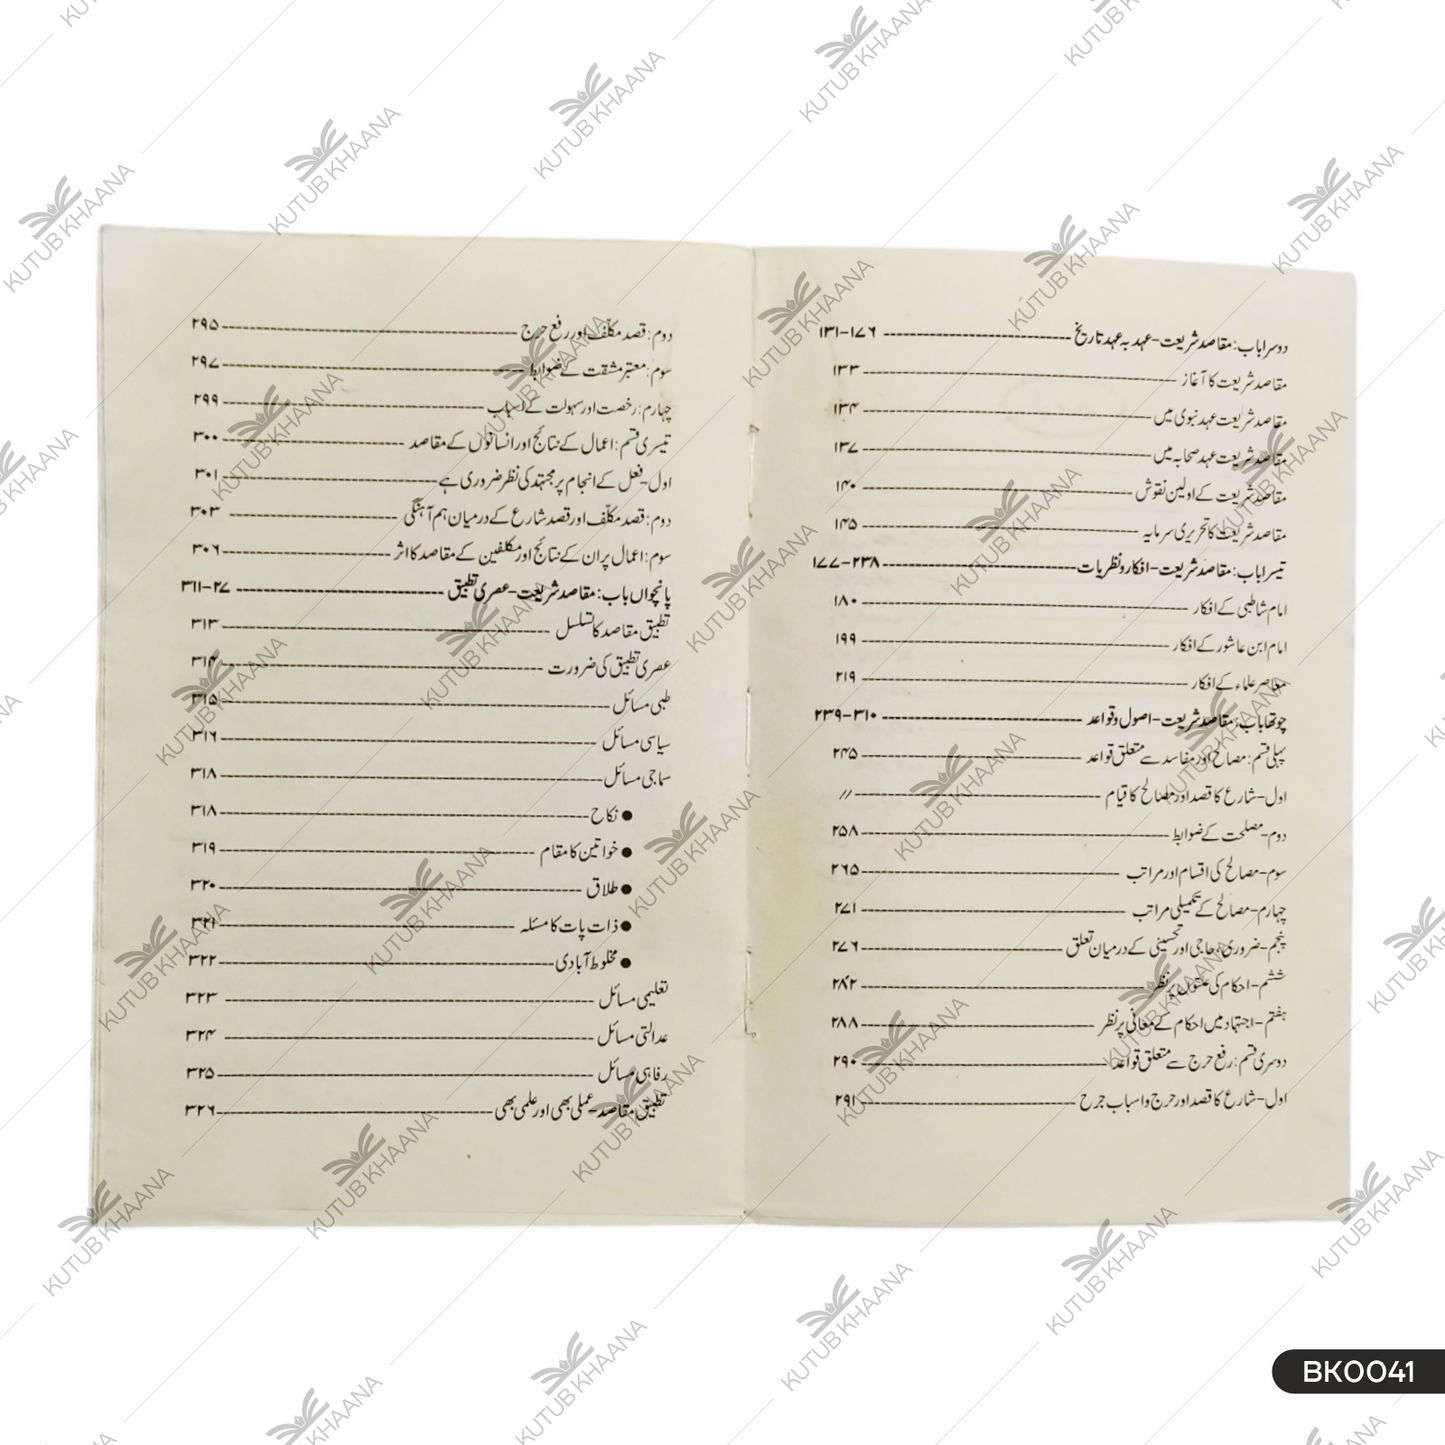 دوسرا باب: مقاصد شریعت-عہد بہ عہد تاریخ ۱۳۱-۱۷۶
مقاصد شریعت کا آغاز ۱۳۳
مقاصد شریعت عہد نبوی میں ۱۳۴
مقاصد شریعت عہد صحابہ میں ۱۳۷
مقاصد شریعت کے اولین نقوش ۱۴۰
مقاصد شریعت کا تحریری سرمایہ ۱۴۵
تیسرا باب: مقاصد شریعت-افکار و نظریات ۱۷۷-۲۳۸
امام شاطبی کے افکار ۱۸۰
امام ابن عاشور کے افکار ۱۹۹
معاصر علماء کے افکار ۲۱۹
چوتھا باب: مقاصد شریعت-اصول و قواعد ۲۳۹-۳۱۰
پہلی قسم: مصالح اور مفاسد سے متعلق قواعد ۲۴۵
اول-شارع کا قصد اور مصالح کا قیام //
دوم-مصلحت کے ضوابط ۲۵۸
سوم-مصالح کی اقسام اور مراتب ۲۶۵
چہارم-مصالح کے تکمیلی مراتب ۲۷۱
پنجم-ضروری، حاجی اور تحسینی کے درمیان تعلق ۲۷۶
ششم-احکام کی علتوں پر نظر ۲۸۲
ہفتم-اجتہاد میں احکام کے معانی پر نظر ۲۸۸
دوسری قسم: رفع حرج سے متعلق قواعد ۲۹۰
اول-شارع کا قصد اور حرج و اسباب حرج ۲۹۱
دوم: قصد مکلف اور رفع حرج ۲۹۵
سوم: معتبر مشقت کے ضوابط ۲۹۷
چہارم: رخصت اور سہولت کے اسباب ۲۹۹
تیسری قسم: اعمال کے نتائج اور انسانوں کے مقاصد ۳۰۰
اول-فعل کے انجام پر مجتہد کی نظر ضروری ہے ۳۰۱
دوم: قصد مکلّف اور قصد شارع کے درمیان ہم آہنگی ۳۰۳
سوم: اعمال پر ان کے نتائج اور مکلفین کے مقاصد کا اثر ۳۰۶
پانچواں باب: مقاصد شریعت-عصری تطبیق ۳۱۱-۲۷
تطبیق مقاصد کا تسلسل ۳۱۳
عصری تطبیق کی ضرورت ۳۱۴
طبی مسائل ۳۱۵
سیاسی مسائل ۳۱۶
سماجی مسائل ۳۱۸
● نکاح ۳۱۸
● خواتین کا مقام ۳۱۹
● طلاق ۳۲۰
● ذات پات کا مسئلہ ۳۲۱
● مخلوط آبادی ۳۲۲
تعلیمی مسائل ۳۲۳
عدالتی مسائل ۳۲۴
رفاہی مسائل ۳۲۵
تطبیق مقاصد-عملی بھی اور علمی بھی ۳۲۶
KUTUB KHAANA
BK0041